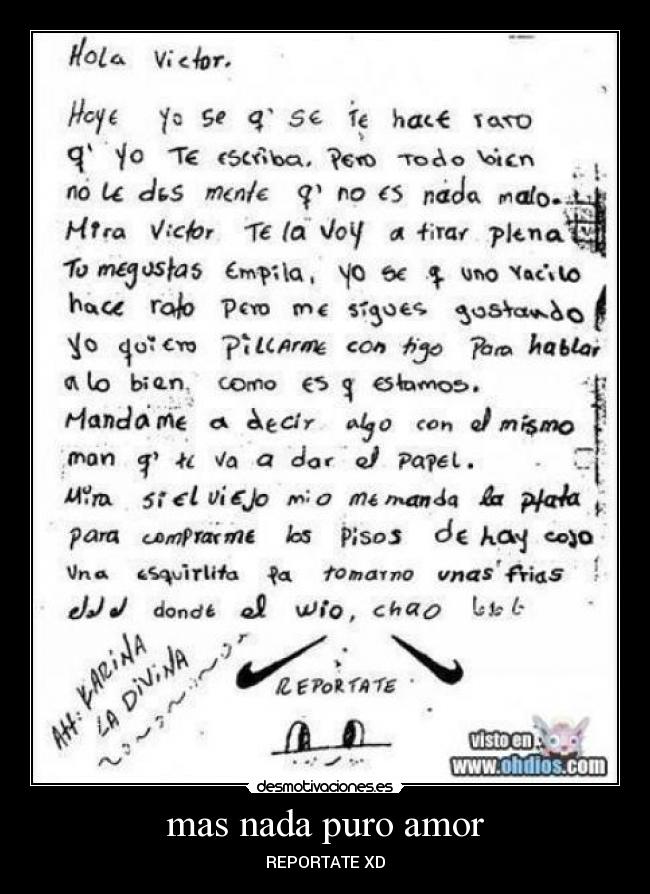 Hola Victor.
Hoye yo se q' se te hace raro
q' yo Te escriba. Pero Todo bien
no le des mente q' no es nada malo.
Mira Victor Te la voy a tirar plena
Tu megustas Empila, yo se q uno vacilo
hace rato Pero me sigues gustando
yo quiero Pillarme con tigo Para hablar
a lo bien, como es q estamos.
Mandame a decir algo con el mismo
man q' te va a dar el PAPEL.
Mira si el viejo mio me manda la plata
para comprarme los pisos de hay cojo
una esquirlita pa tomarno unas frias
donde el wio, chao
Att: KARINA
LA DIVINA
REPORTATE
visto en
www.ohdios.com
desmotivaciones.es
mas nada puro amor
REPORTATE XD